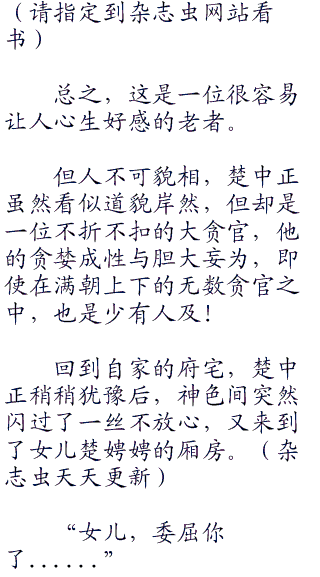 （请指定到杂志虫网站看
书）
总之，这是一位很容易
让人心生好感的老者。
但人不可貌相，楚中正
虽然看似道貌岸然，但却是
一位不折不扣的大贪官，他
的贪婪成性与胆大妄为，即
使在满朝上下的无数贪官之
中，也是少有人及！
回到自家的府宅，楚中
正稍稍犹豫后，神色间突然
闪过了一丝不放心，又来到
了女儿楚娉娉的厢房。（杂
志虫天天更新）
“女儿，委屈你
了......”